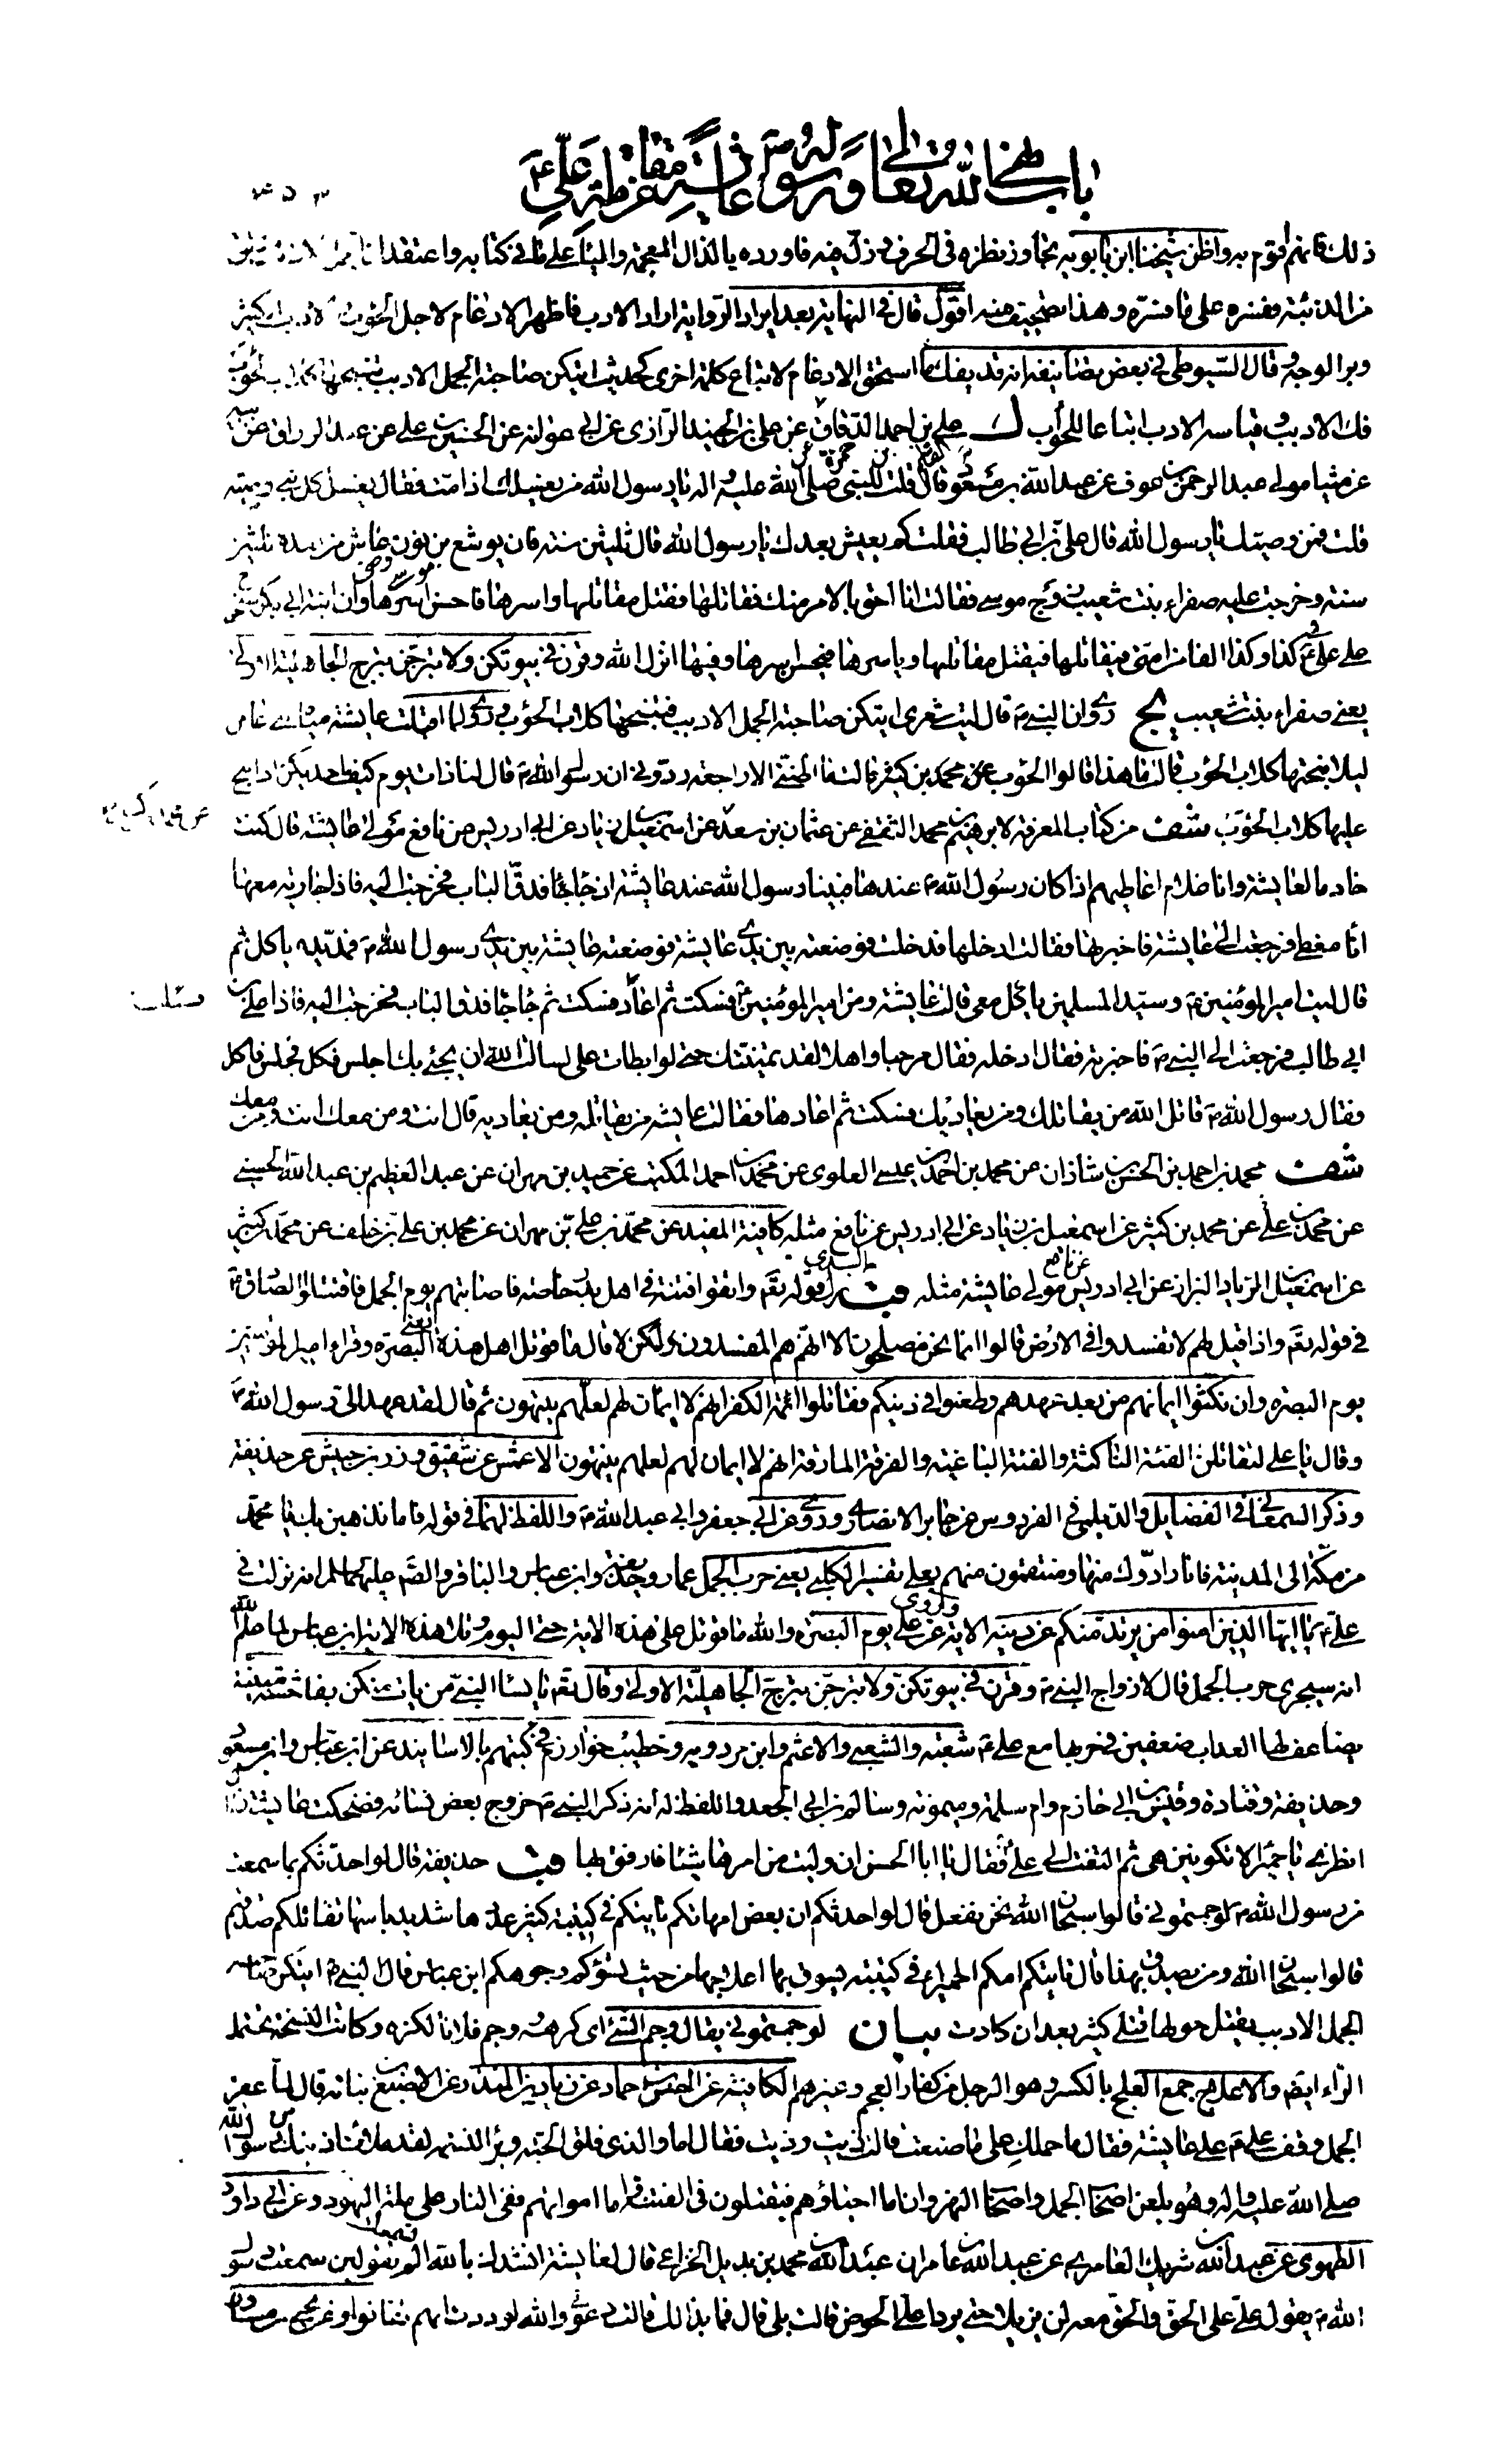 باب نهي الله تعالى ورسوله ص عائشة عن مقاتلة علي ع
٤٥٣
ذلك فانهم اقوم به واظن شيخنا ابن بابويه تجاوز نظره في الحرف وزل فيه فاورده بالذال المعجمة والياء على ما في كتابه واعتقد
من الذئبة ففسره على ما فسره وهذا تصحيف منه اقول قال في النهاية بعد ايراد الرواية اراد الادب فاظهر الادغام لاجل الحوئب والادب الكثير
وبر الوجه وقال السيوطي في بعض تصانيفه انه قد يفك ما استحق الادغام لاتباع كلمة اخرى كحديث ايتكن صاحبة الجمل الادبب تنبحها كلاب الحوئب
فك الادبب وقياسه الادب اتباعا للحوأب ك علي بن احمد الدقاق عن حمزة بن القاسم عن علي بن الجنيد الرازي عن ابي عوانة عن الحسين بن علي عن عبد الرزاق عن ابيه
عن مينا مولى عبد الرحمن بن عوف عن عبد الله بن مسعود قال قلت للنبي صلى الله عليه واله يا رسول الله من يغسلك اذا مت فقال يغسل كل نبي وصيه
قلت فمن وصيك يا رسول الله قال علي بن ابي طالب فقلت كم يعيش بعدك يا رسول الله قال ثلثين سنة فان يوشع بن نون وصي موسى عاش من بعده ثلثين
سنة وخرجت عليه صفراء بنت شعيب زوج موسى فقالت انا احق بالامر منك فقاتلها فقتل مقاتلها واسرها فاحسن اسرها وان ابنة ابي بكر ستخرج
على علي ع في كذا وكذا الفا من امتي فيقاتلها فيقتل مقاتلها وياسرها فيحسن اسرها وفيها انزل الله وقرن في بيوتكن ولا تبرجن تبرج الجاهلية الاولى
يعني صفراء بنت شعيب يج روي ان النبي ص قال ليت شعري ايتكن صاحبة الجمل الادبب فتنبحها كلاب الحوئب وروي لما اقبلت عايشة مياه بني عامر
ليلا نبحتها كلاب الحوئب قالت ما هذا قالوا الحوئب قالت ما اظنني الا راجعة ردوني ان رسول الله ص قال لنا ذات يوم كيف باحديكن اذا نبح
عليها كلاب الحوئب شف من كتاب المعرفة لابرهيم بن محمد الثقفي عن عثمان بن سعد عن اسمعيل بن زياد عن ابي ادريس عن نافع مولى عايشة قال كنت
خادما لعايشة وانا غلام اعاطيهم اذا كان رسول الله ص عندها فبينا رسول الله عند عايشة اذ جاء جاء فدق الباب فخرجت اليه فاذا جارية معها
اناء مغطى فرجعت الى عايشة فاخبرتها فقالت ادخلها فدخلت فوضعته بين يدي عايشة فوضعته عايشة بين يدي رسول الله ص فمد يده ياكل ثم
قال ليت امير المؤمنين ع وسيد المسلمين ياكل معي قالت عايشة ومن امير المؤمنين فسكت ثم اعاد فسكت ثم جاء جاء فدق الباب فخرجت اليه فاذا علي بن
ابي طالب فرجعت الى النبي ص فاخبرته فقال ادخله فقال مرحبا واهلا لقد تمنيتك حتى لو ابطات علي لسالت الله ان يجئ بك اجلس فكل فجلس فاكل
فقال رسول الله ص قاتل الله من يقاتلك ومن يعاديك فسكت ثم اعادها فقالت عايشة من يقاتله ومن يعاديه قال انت ومن معك انت ومن معك
شف محمد بن احمد بن الحسن بن شاذان عن محمد بن احمد بن عيسى العلوي عن محمد بن احمد المكتب عن حميد بن مهران عن عبد العظيم بن عبد الله الحسني
عن محمد بن علي عن محمد بن كثير عن اسمعيل بن زياد عن ابي ادريس عن نافع مثله كافية المفيد عن محمد بن علي بن مهران عن محمد بن علي بن خلف عن محمد بن كثير
عن اسمعيل بن زياد البزاز عن ابي ادريس عن نافع مولى عايشة مثله قب السدي في قوله تع واتقوا فتنة في اهل بدر خاصة فاصابتهم يوم الجمل فاقتتلوا الصادق ع
في قوله تع واذا قيل لهم لا تفسدوا في الارض قالوا انما نحن مصلحون الا انهم هم المفسدون ولكن لا قال ما قوتل اهل هذه يعني البصرة وقرأ امير المؤمنين
يوم البصرة وان نكثوا ايمانهم من بعد عهدهم وطعنوا في دينكم فقاتلوا ائمة الكفر انهم لا ايمان لهم لعلهم ينتهون ثم قال لقد عهد الي رسول الله ص
وقال يا علي لتقاتلن الفئة الناكثة والفئة الباغية والفرقة المارقة انهم لا ايمان لهم لعلهم ينتهون الاعمش عن شقيق وزر بن حبيش عن حذيفة
وذكر السمعاني في الفضايل والديلمي في الفردوس عن جابر الانصاري وروي عن ابي جعفر وابي عبد الله ع واللفظ لهما في قوله فاما نذهبن بك يا محمد
من مكة الى المدينة فانا رادوك منها ومنتقمون منهم بعلي تفسير الكلبي يعني حرب الجمل عمار وحذيفة وابن عباس والباقر والصادق عليهما السلام انه نزلت في
علي ع يا ايها الذين امنوا من يرتد منكم عن دينه الاية وروي عن علي يوم البصرة والله ما قوتل على هذه الاية حتى اليوم وتلا هذه الاية ابن عباس لما علم الله
انه سيجري حرب الجمل قال لازواج النبي ص وقرن في بيوتكن ولا تبرجن تبرج الجاهلية الاولى وقال تع يا نساء النبي من يات منكن بفاحشة مبينة
يضاعف لها العذاب ضعفين في حربها مع علي ع شعبة والشعبي والاعثم وابن مردويه وخطيب خوارزم في كتبهم بالاسانيد عن ابن عباس وابن مسعود
وحذيفة وقتادة وقيس بن ابي حازم وام سلمة وميمونة وسالم بن ابي الجعد واللفظ له انه ذكر النبي ص خروج بعض نسائه فضحكت عايشة فقال
انظري يا حميراء لا تكونين هي ثم التفت الى علي ع فقال يا ابا الحسن ان وليت من امرها شيئا فارفق بها قب حذيفة قال لو احدثكم بما سمعت
من رسول الله ص لوجمتموني قالوا سبحان الله نحن نفعل قال لو احدثكم ان بعض امهاتكم تاتيكم في كتيبة كثير عددها شديد باسها تقاتلكم صدقتم
قالوا سبحان الله ومن يصدق بهذا قال تاتيكم امكم الحميراء في كتيبة يسوق بها اعلاجها من حيث تسوؤكم وجوهكم ابن عباس قال النبي ص ايتكن صاحبة
الجمل الادبب يقتل حولها قتلى كثير بعد ان كادت بيان لوجمتموني يقال وجم الشئ اي كرهه وجم فلانا لكزه وكانت النسخة تحتمل
الراء ايضا والاعلاج جمع العلج بالكسر وهو الرجل من كفار العجم وغيرهم الكافية عن الحسن بن حماد عن زياد بن المنذر عن الاصبغ بن نباتة قال لما عقر
الجمل وقف علي ع على عايشة فقال ما حملك على ما صنعت قالت ذيت وذيت فقال اما والذي فلق الحبة وبرا النسمة لقد ملأت اذنيك من رسول الله
صلى الله عليه واله وهو يلعن اصحاب الجمل واصحاب النهروان اما احياؤهم فيقتلون في الفتنة واما امواتهم ففي النار على ملة اليهود وعن ابي داود
الطهوي عن عبد الله بن شريك العامري عن عبد الله بن عامر ان عبد الله بن محمد بن بديل الخزاعي قال لعايشة انشدك بالله الم نسمعك تقولين سمعت رسول
الله ص يقول علي على الحق والحق معه لن يزيلا حتى يردا علي الحوض قالت بلى قال فما بدا لك قالت دعوني والله لوددت انهم تفانوا وعن يحيى بن مساور